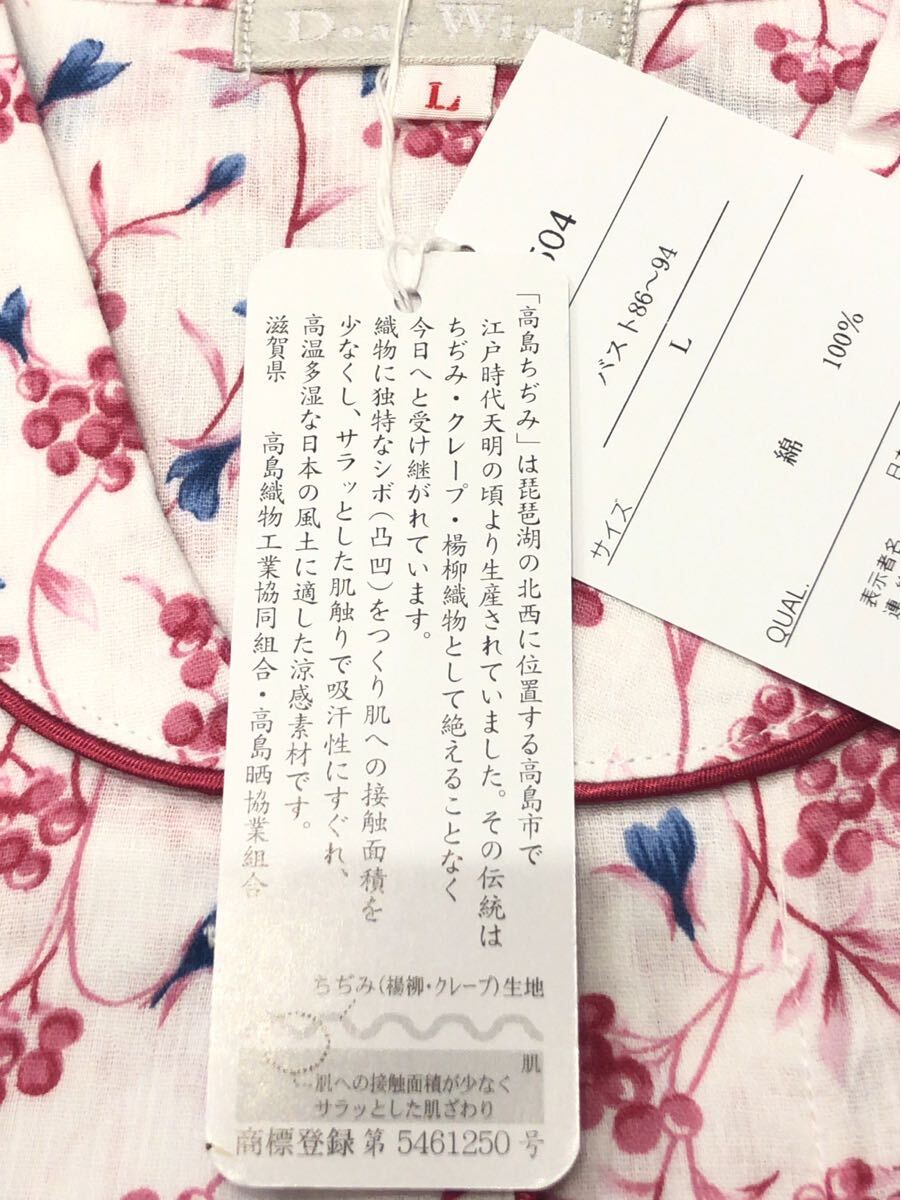 Dear Wind
L
「高島ちぢみ」は琵琶湖の北西に位置する高島市で
江戸時代天明の頃より生産されていました。その伝統は
ちぢみ・クレープ・楊柳織物として絶えることなく
今日へと受け継がれています。
織物に独特なシボ（凸凹）をつくり肌への接触面積を
少なくし、サラッとした肌触りで吸汗性にすぐれ、
高温多湿な日本の風土に適した涼感素材です。
滋賀県　高島織物工業協同組合・高島晒協業組合
ちぢみ（楊柳・クレープ）生地
肌
肌への接触面積が少なく
サラッとした肌ざわり
商標登録 第 5461250 号
504
サイズ
バスト86〜94
L
QUAL.
綿 100%
表示者名